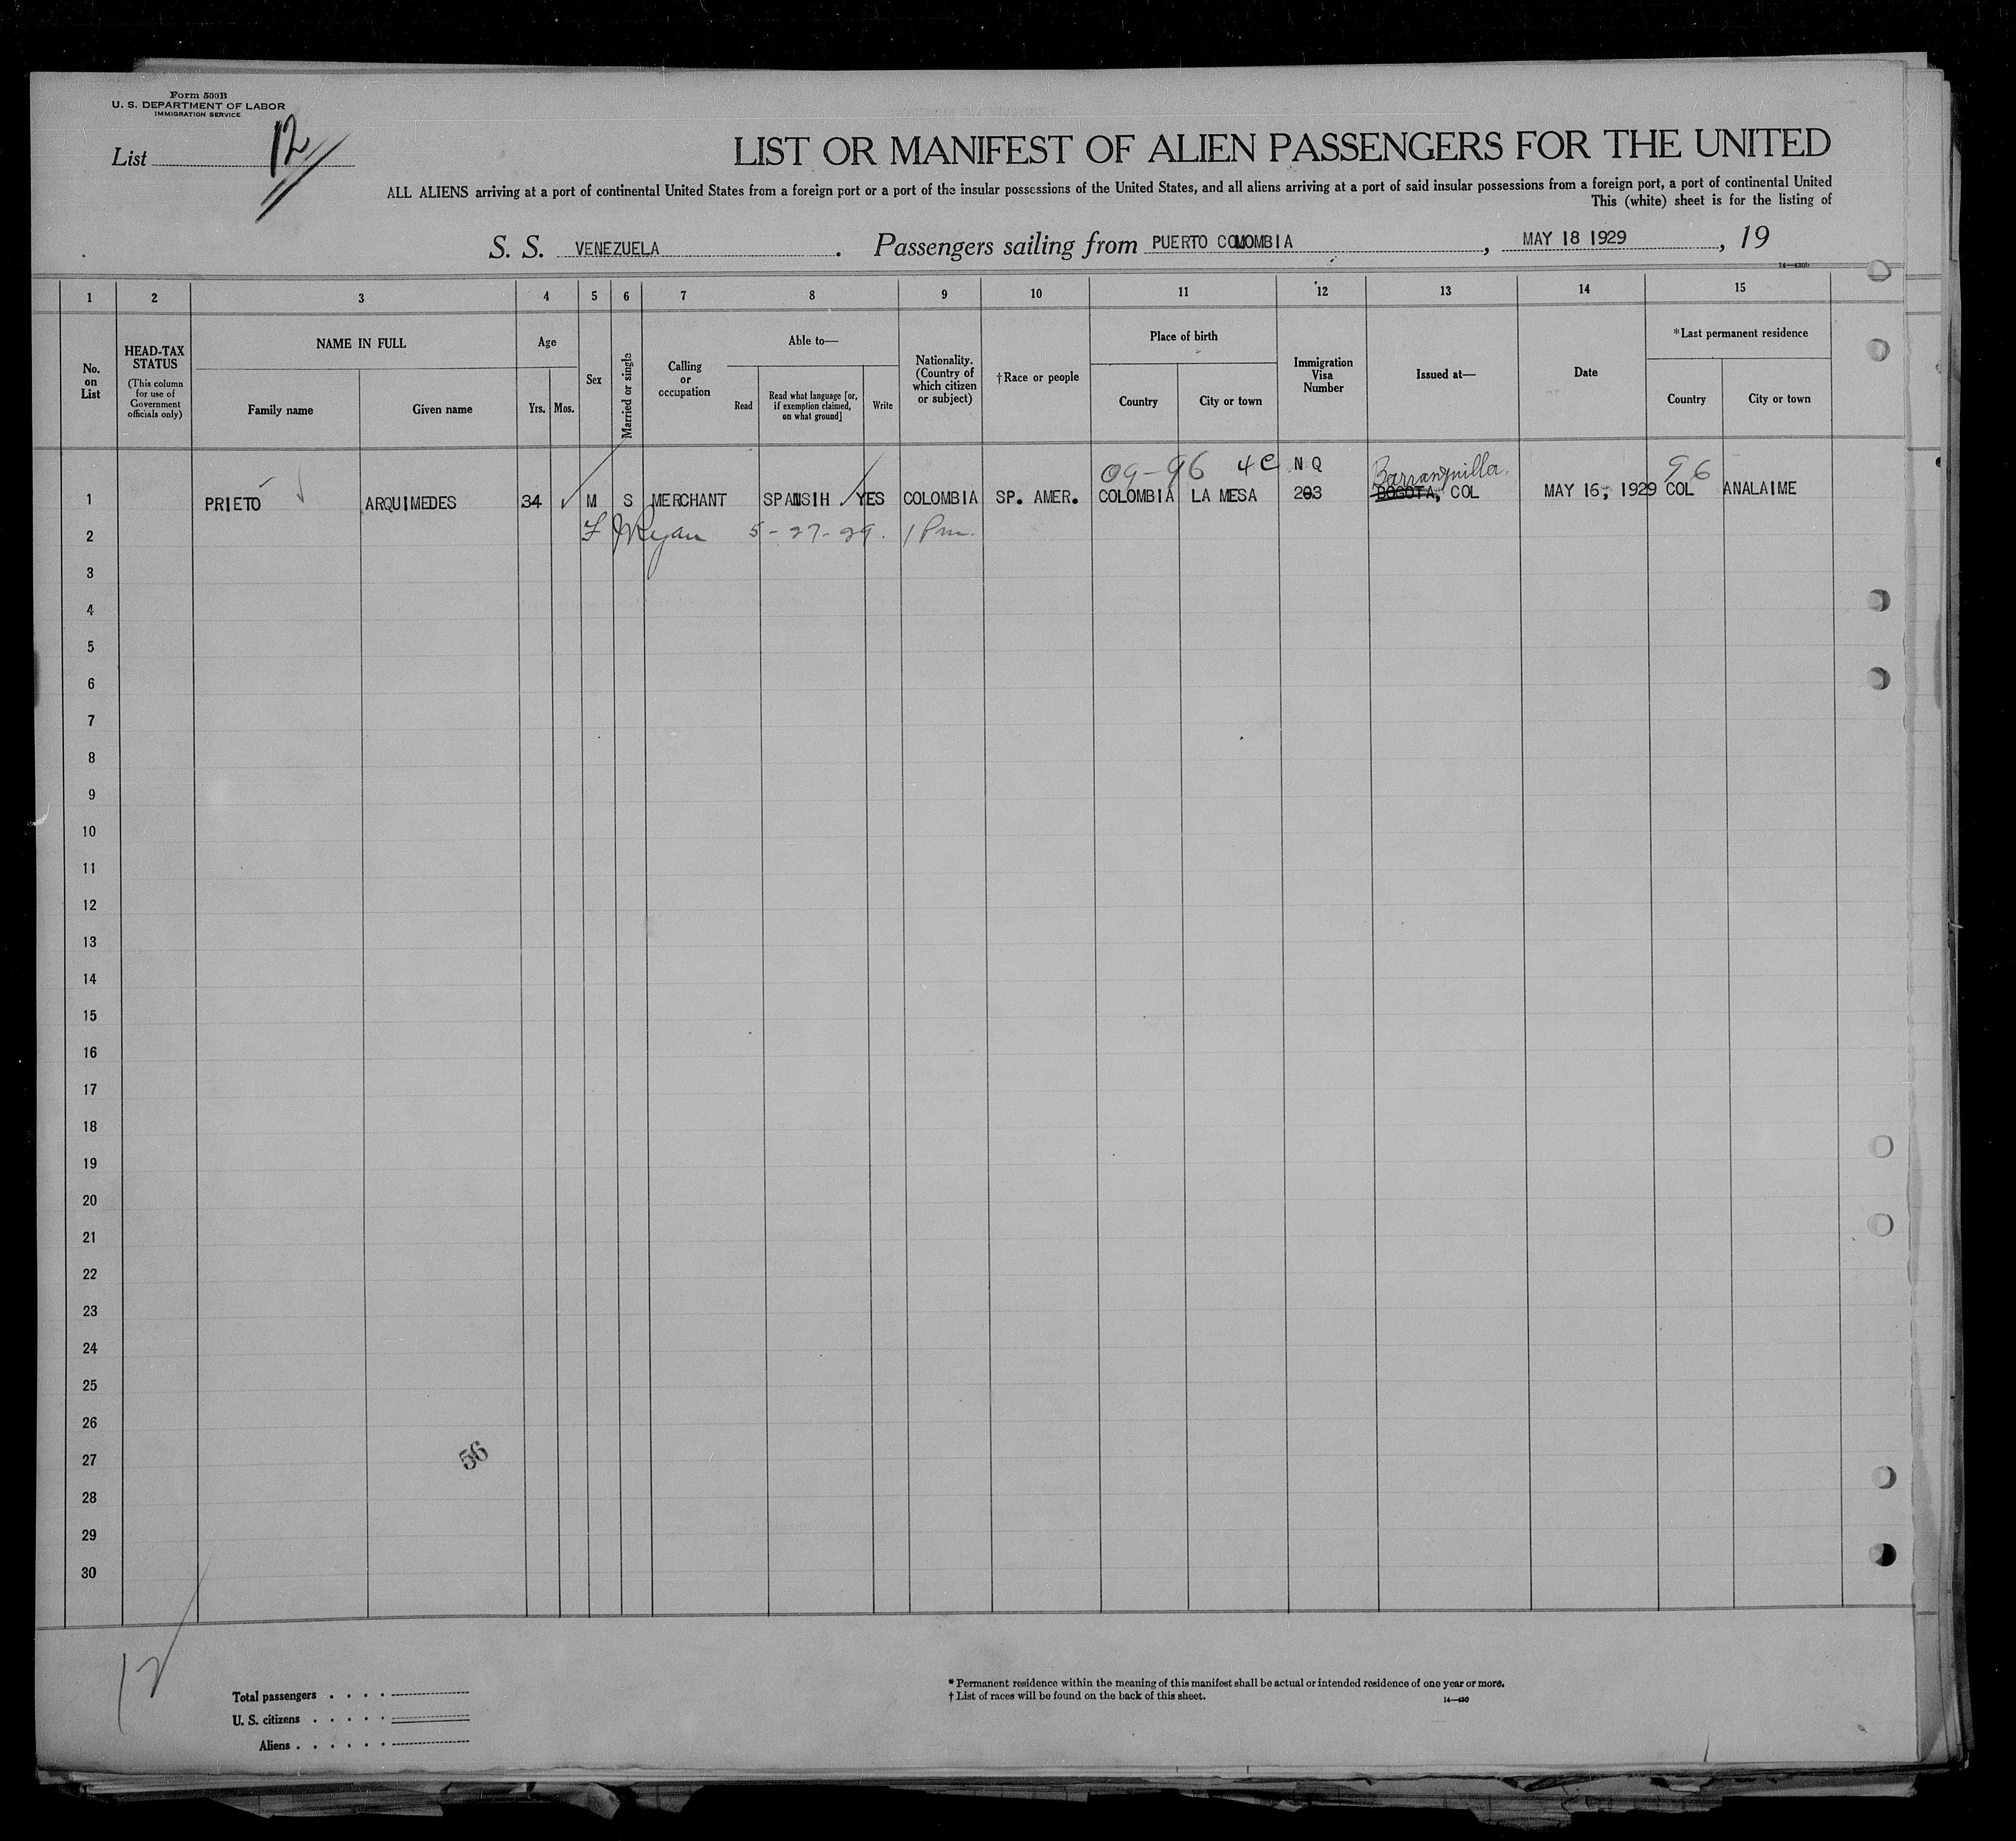 Form 500B
U. S. DEPARTMENT OF LABOR
IMMIGRATION SERVICE
List 12
LIST OR MANIFEST OF ALIEN PASSENGERS FOR THE UNITED
ALL ALIENS arriving at a port of continental United States from a foreign port or a port of the insular possessions of the United States, and all aliens arriving at a port of said insular possessions from a foreign port, a port of continental United
This (white) sheet is for the listing of
S. S. VENEZUELA. Passengers sailing from PUERTO COLOMBIA, MAY 18 1929, 19
14—430b
1 2 3 4 5 6 7 8 9 10 11 12 13 14 15
No. on List
HEAD-TAX STATUS
(This column for use of Government officials only)
NAME IN FULL
Family name
Given name
Age
Yrs.
Mos.
Sex
Married or single
Calling or occupation
Able to—
Read
Read what language [or, if exemption claimed, on what ground]
Write
Nationality. (Country of which citizen or subject)
†Race or people
Place of birth
Country
City or town
Immigration Visa Number
Issued at—
Date
*Last permanent residence
Country
City or town
09-96 4C NQ Barranquilla, 96
1 PRIETO ARQUIMEDES 34 M S MERCHANT SPANSIH YES COLOMBIA SP. AMER. COLOMBIA LA MESA 203 BOGOTA, COL MAY 16, 1929 COL ANALAIME
2 F J Ryan 5-27-29. 1 Pm.
3
4
5
6
7
8
9
10
11
12
13
14
15
16
17
18
19
20
21
22
23
24
25
26
27
28
29
30
56
12
Total passengers
U. S. citizens
Aliens
* Permanent residence within the meaning of this manifest shall be actual or intended residence of one year or more.
† List of races will be found on the back of this sheet.
14—430